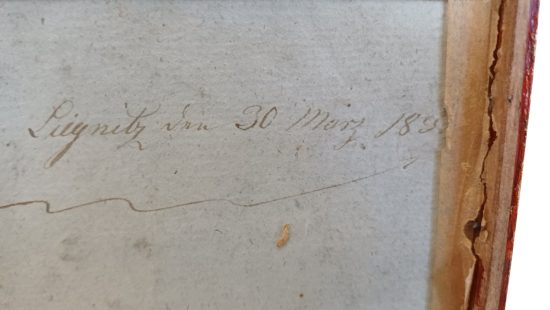 Liegnitz den 30 März